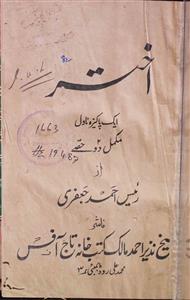 اختر
ایک پاکیزہ ناول
مکمل دو حصے
از
رئیس احمد جعفری
ناشر
شیخ نذیر احمد مالک کتب خانہ تاج آفس
محمد علی روڈ بمبئی ۳
1663